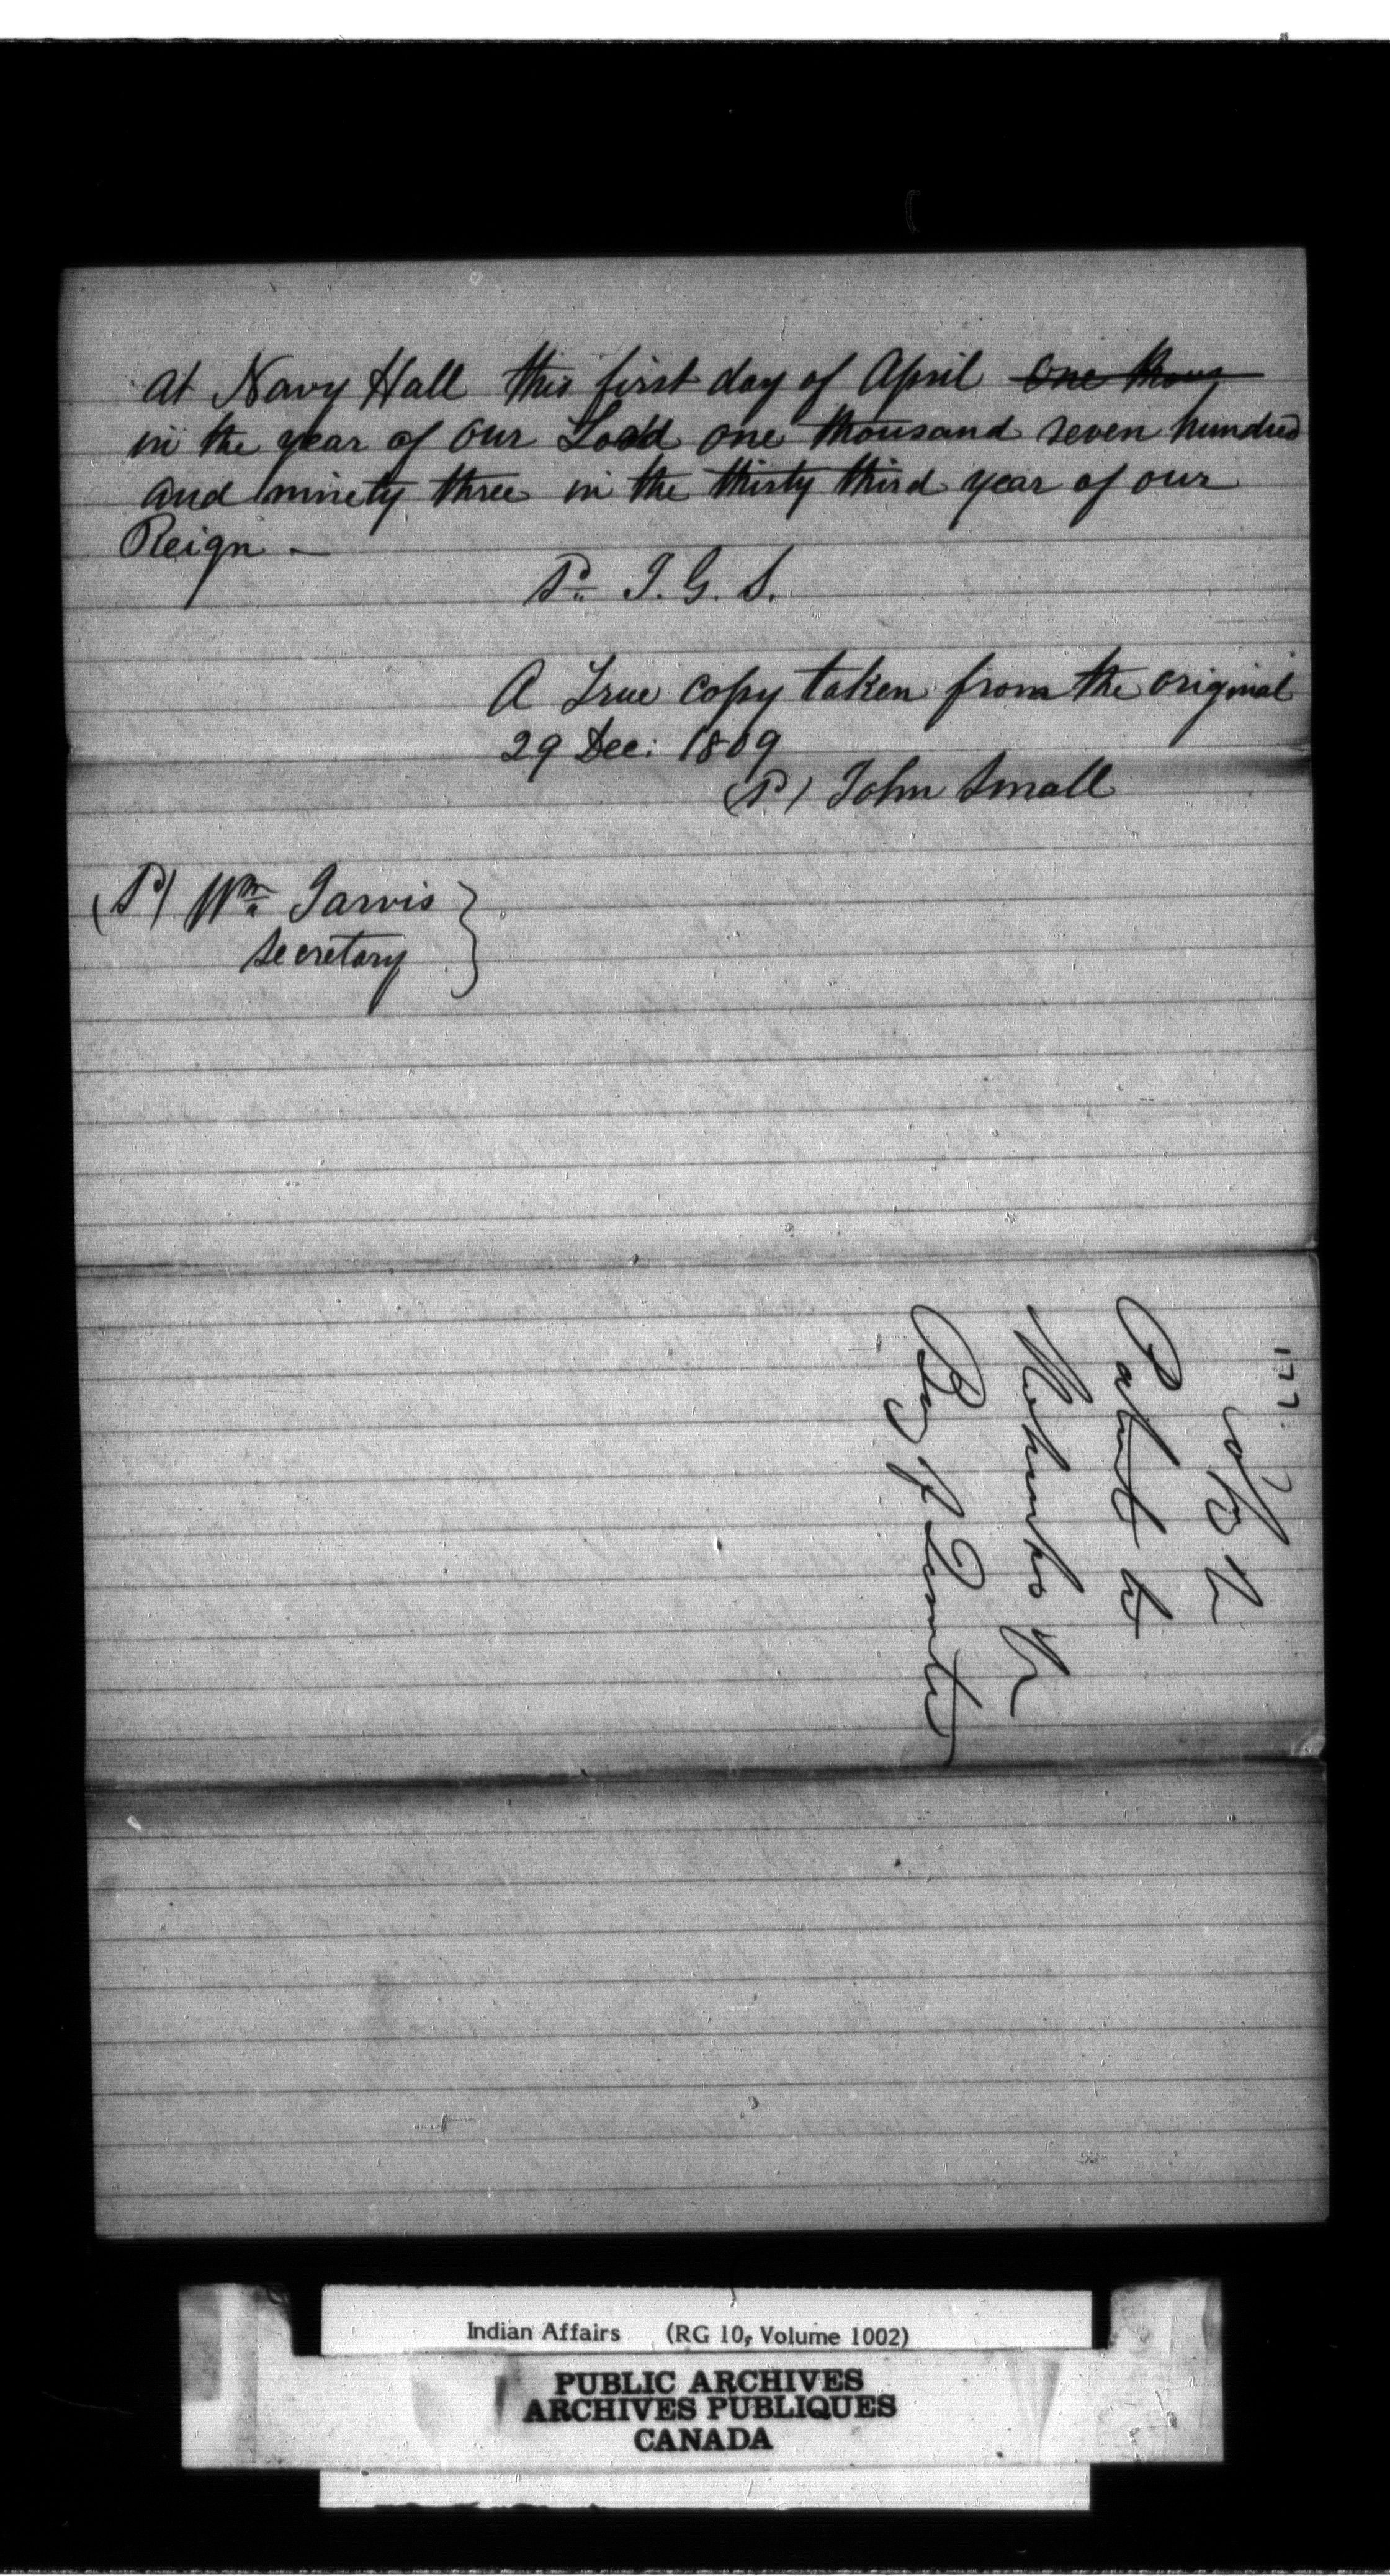 at Navy Hall this first day of April one thous
in the year of our Lord one thousand seven hundred
and ninety three in the thirty third year of our
Reign —
Sd. J. G. S.
A True copy taken from the original
29 Dec: 1809
(Sd) John Small
(Sd) Wm. Jarvis
Secretary
177.
Copy of
Patent to
Mohawks of
Bay of Quinte
Indian Affairs (RG 10, Volume 1002)
PUBLIC ARCHIVES
ARCHIVES PUBLIQUES
CANADA